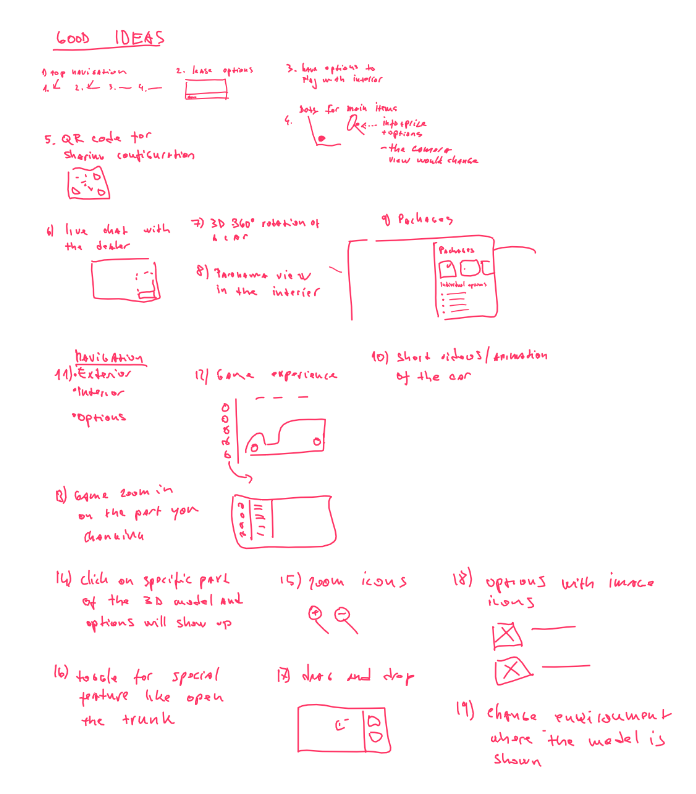 GOOD IDEAS
1) top navigation
1. 2. 3. 4.
2. lease options
3. have options to
play with interior
4. dots for main items
info + price
+ options
- the camera
view would change
5. QR code for
sharing configuration
6) live chat with
the dealer
7) 3D 360° rotation of
a car
8) Panorama view
in the interier
9) Packages
Packages
Individual options
Navigation
11) • Exterior
• Interior
• Options
12) Game experience
10) short videos/animation
of the car
13) Game zoom in
on the part you
changing
14) click on specific part
of the 3D model and
options will show up
15) zoom icons
18) options with image
icons
16) toggle for special
feature like open
the trunk
17) drag and drop
19) change environment
where the model is
shown